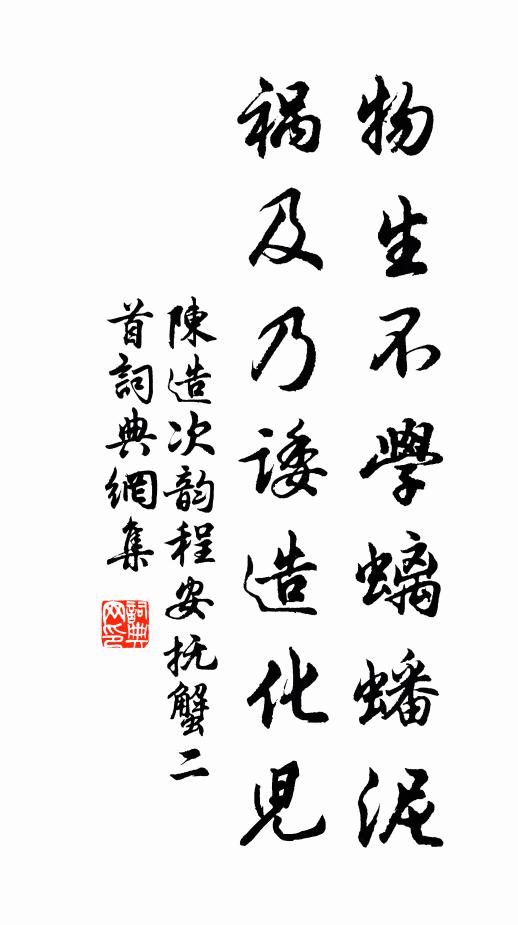 物生不學螭蟠泥
禍及乃諉造化児
陳造次韵程安抚蟹二
首詞典網集
詞典网印